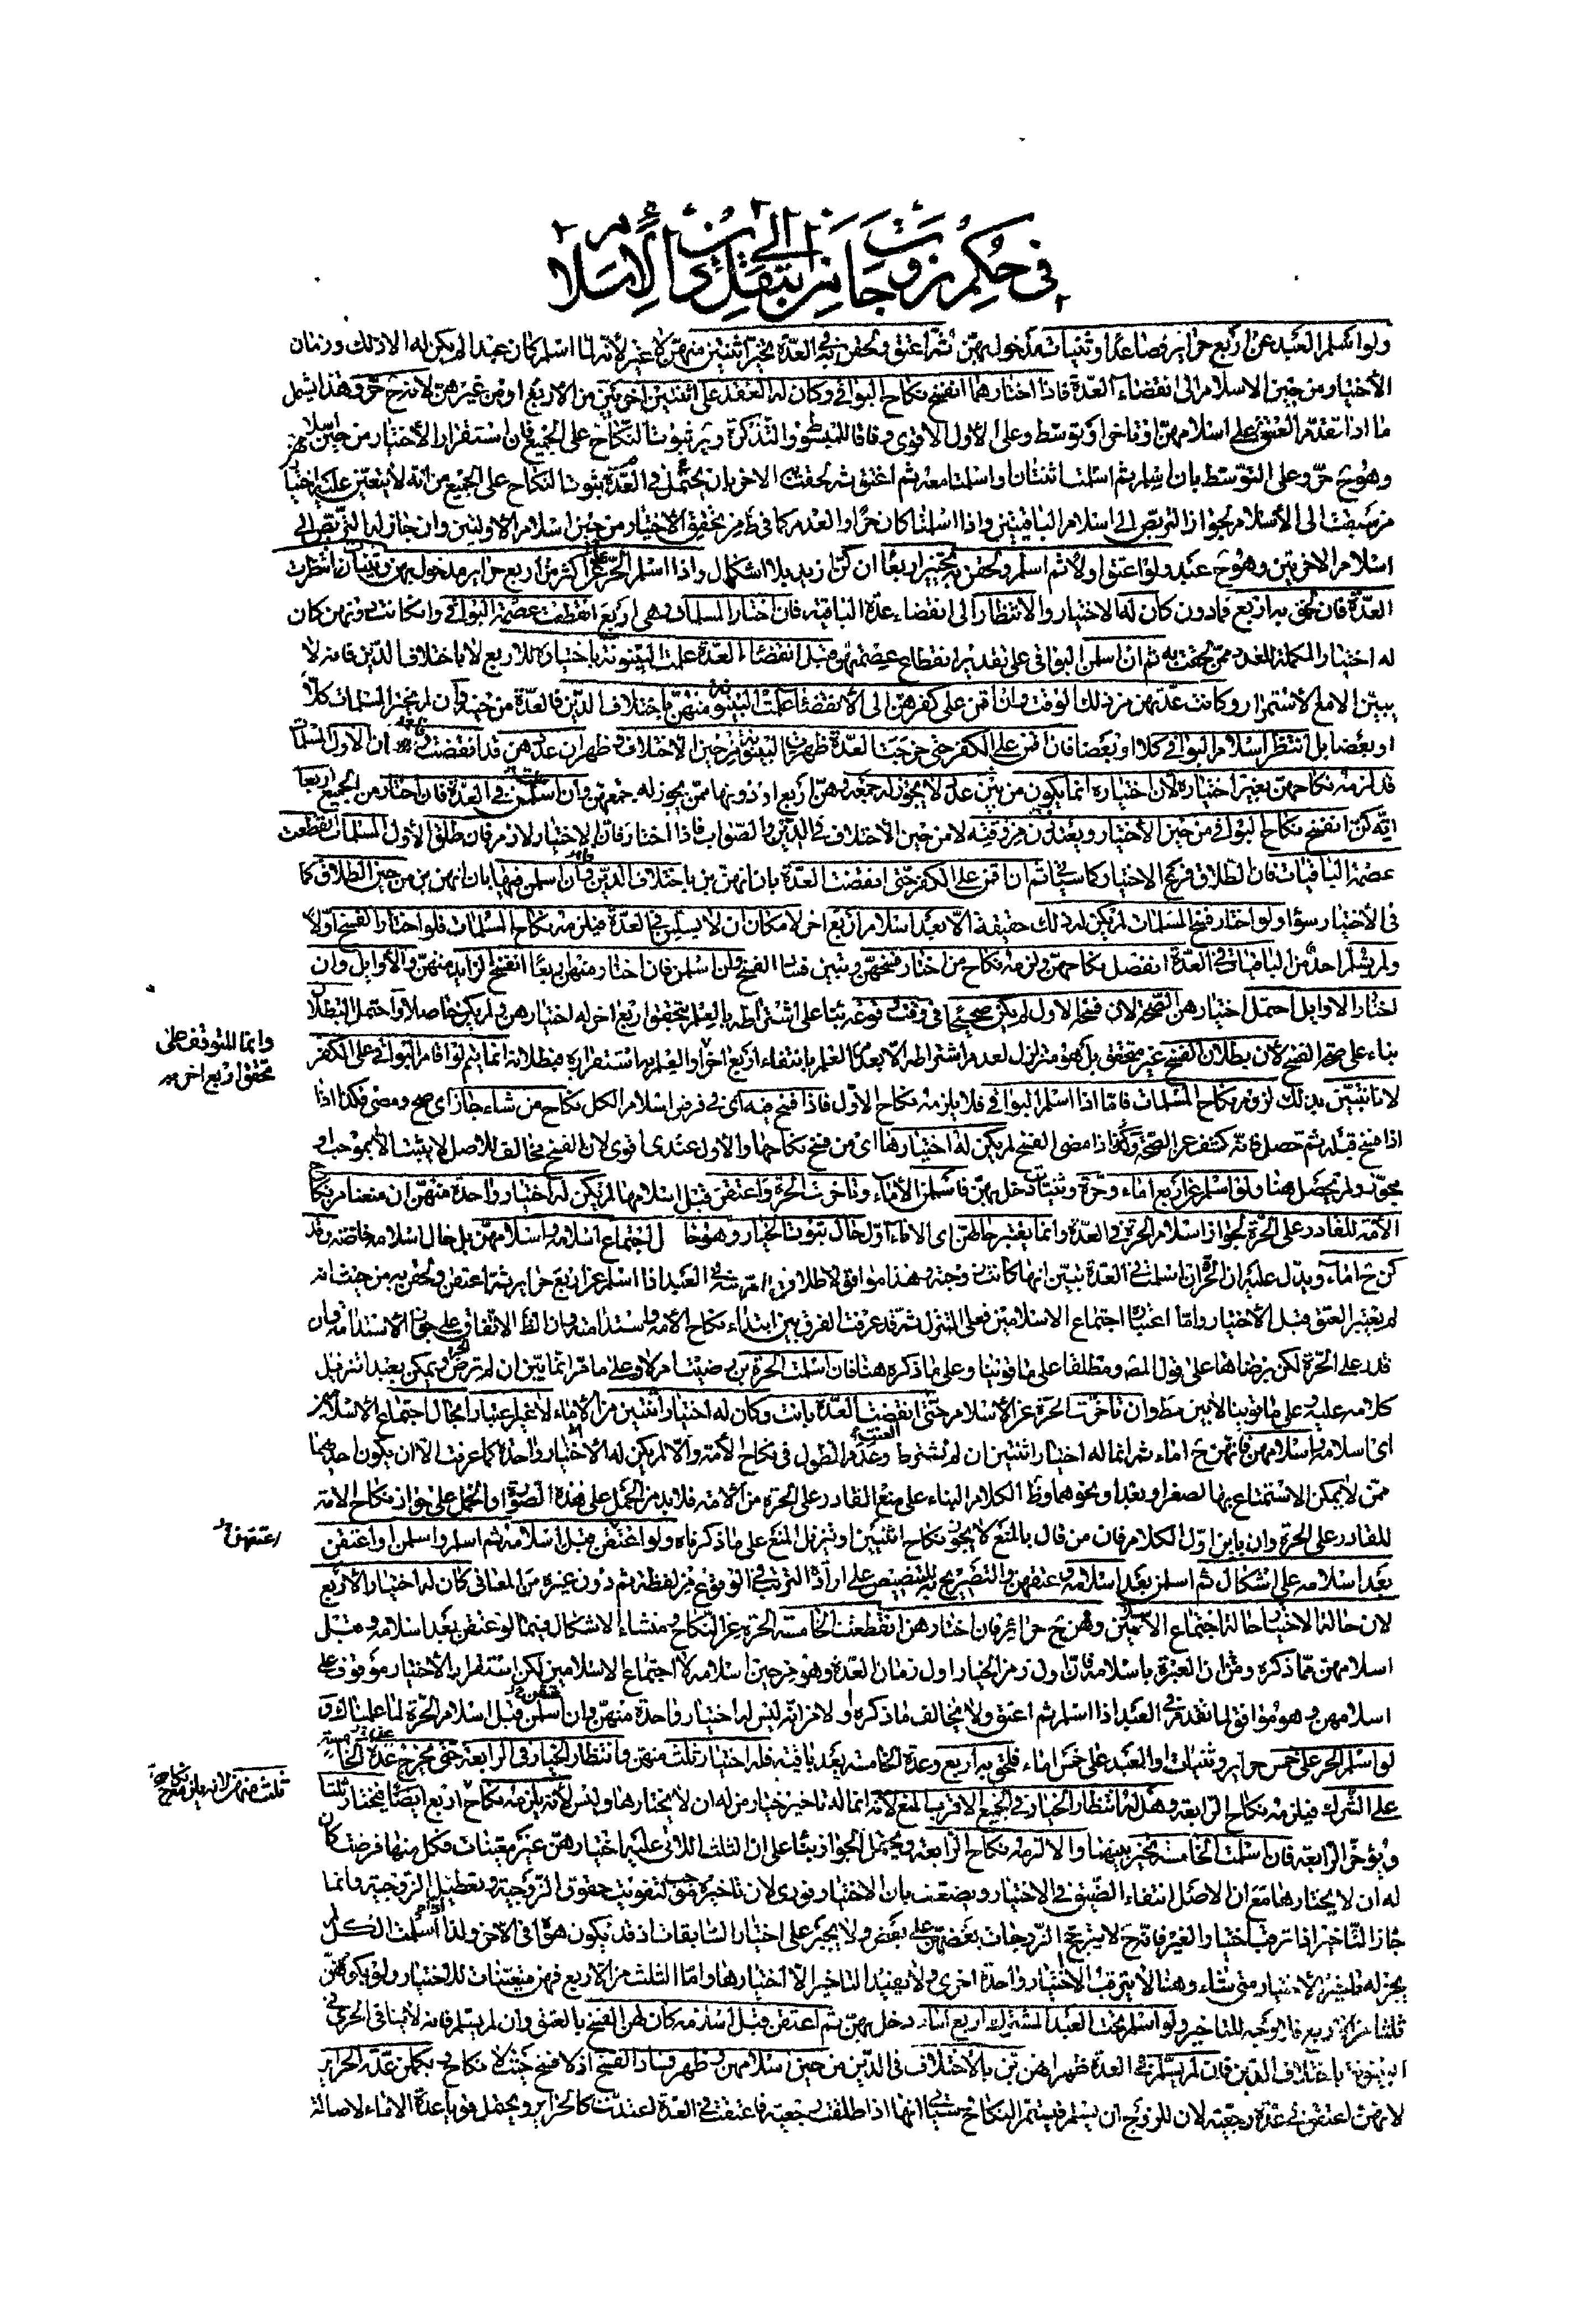 في حكم زوجات من انتقل الى دين الإسلام
ولو اسلم العبد عن اربع حرائر فصاعدا وثنيات مدخول بهن ثم اعتق ولحقن به في العدة تخير اثنتين منهن لا غير لأنه لما اسلم كان عبدا لم يكن له الا ذلك وزمان
الأختيار من حين الاسلام الى انقضاء العدة فاذا اختارهما انفسخ نكاح البواقي وكان له العقد على اثنتين اخريين من الاربع او من غيرهن لانه ح حر وهذا يشمل
ما اذا تقدم العتق على اسلامهن او تاخر او توسط وعلى الأول الاقوى وفاقا للمبسوط والتذكرة ثبوت النكاح على الجميع فان استقرار الأختيار من حين اسلامهن
وهو ح حر وعلى التوسط بان اسلم ثم اسلمت اثنتان واسلمتا معه ثم اعتق ثم لحقت الاخريان يحتمل في العدة ثبوت النكاح على الجميع من انه لا يتعين عليه اختيار
من سبقت الى الأسلام لجواز التربص الى اسلام الباقيتين واذا اسلمتا كان حرا والعدم كما في ظ من تحقق الاختيار من حين اسلام الاوليين وان جاز له التربص الى
اسلام الاخريين وهو ح عبد ولو اعتق اولا ثم اسلم ولحقن به تخير اربعا ان كن ازيد بلا اشكال واذا اسلم الحر على اكثر من اربع حرائر مدخول بهن وثنيات انتظرت
العدة فان لحق به اربع فما دون كان له الاختيار والانتظار الى انقضاء عدة الباقية فان اختار المسلمات وهي اربع انقطعت عصمة البواقي وان كانت دونهن كان
له اختيار المكملة للعدد ممن لحقت به ثم ان اسلمن البواقي على تقدير انقطاع عصمتهن قبل انقضاء العدة علمت البينونة باختياره للاربع لا باختلاف الدين فانه لا
يبين الا مع الأستمرار وكانت عدتهن من ذلك الوقت وان اقمن على كفرهن الى الانقضاء علمت البينونة منهن باختلاف الدين فالعدة من حينه وان لم يختر المسلمات كلا
او بعضا بل انتظر اسلام البواقي كلا او بعضا فان اقمن على الكفر حتى خرجت العدة ظهر ان البينونة من حين الاختلاف وظهر ان عدتهن قد انقضت وان الاول المسلمات
قد لزمه نكاحهن بغير اختياره لأن اختياره انما يكون من بين عدد لا يجوز له جمعه وهن اربع او دونها ممن يجوز له جمعهن وان اسلمن في العدة فان اختار من الجميع اربعا
ايته كن انفسخ نكاح البواقي من حين الأختيار ويعتددن من وقته لا من حين الأختلاف في الدين والصواب فاذا اختار فان الاختيار لازم فان طلق الأول المسلمات انقطعت
عصمة الباقيات فان الطلاق فرع الاختيار كما سياتي ثم ان اقمن على الكفر حتى انقضت العدة بان انهن بن باختلاف الدين وان اسلمن فيها بان انهن بن من حين الطلاق كما
في الأختيار سواء ولو اختار فسخ المسلمات لم يكن له ذلك حقيقة الا بعد اسلام اربع اخر لامكان ان لا يسلمن في العدة فيلزمه نكاح المسلمات فلو اختار الفسخ اولا
ولم يسلم احد من الباقيات في العدة انفصل نكاحهن ولزمه نكاح من اختار فسخهن وتبين فساد الفسخ وان اسلمن فان اختار منهن اربعا انفسخ الزايد منهن والأوايل وان
اختار الاوايل احتمل اختيارهن الصحة لان فسخه الاول لم يكن صحيحا في وقت وقوعه بناء على اشتراطه بالعلم بتحقق اربع اخر له اختيارهن ولم يكن حاصلا واحتمل البطلان
بناء على صحة الفسخ لأن بطلان الفسخ غير متحقق بل هو متزلزل لعدم اشتراطه الا بعدم العلم بانتفاء اربع اخر والعلم بها استقراره فبطلانه انما يتم لو اقام البواقي على الكفر
وانما التوقف على
تحقق اربع اخر
لانا نتبين بذلك لزوم نكاح المسلمات فاما اذا اسلم البواقي فلا يلزمه نكاح الأول فاذا فسخ ضه اى في فرض اسلام الكل نكاح من شاء جاز اى صح ومضى فكذا اذا
اذا فسخ قبله ثم حصل فانه كشف عن الصحة وكلما اذا مضى الفسخ لم يكن له اختيارها اى من فسخ نكاحها والأول عندى اقوى لان الفسخ مخالف للاصل لا يثبت الا بموجب او
مجوز ولم يحصل هنا ولو اسلم عن اربع اماء وحرة وثنيات دخل بهن فاسلمن الأماء وتاخرت الحرة واعتقن قبل اسلامها لم يكن له اختيار واحدة منهن ان منعنا من نكاح
الأمة للقادر على الحرة لجواز اسلام الحرة في العدة وانما يعتبر حالهن اى الاماء اول حال ثبوت الخيار وهو حال اجتماع اسلامه واسلامهن بل حال اسلامه خاصة وقد
كن ح اماء ويدل عليه ان الحرة ان اسلمت في العدة تبين انها كانت زوجته وهذا موافق لاطلاق ما مر منه في العبد اذا اسلم عن اربع حرائر ثم اعتق ولحقن به من حيث انه
لم يعتبر العتق قبل الأختيار واما اعتباره اجتماع الاسلامين فعلى التنزل ثم قد عرفت الفرق بين ابتداء نكاح الأمة واستدامته وان الظ الاتفاق على جواز الأستدامة وان
قدر على الحرة لكن برضاها على قول المص ومطلقا على ما قوينا وعلى ما ذكره هنا فان اسلمت الحرة بن رضيت ام لا وعلى ما مر انما يبن ان لم ترض ويمكن بعيدا تنزيل
كلامه عليه وعلى ما قوينا لا يبن مط وان تاخرت الحرة عن الأسلام حتى انقضت العدة بانت وكان له اختيار اثنتين من الأماء لا غير اعتبارا بحال اجتماع الأسلامين
اى اسلامه واسلامهن فانهن ح اماء ثم انما له اختيار اثنتين ان لم نشترط العنت وعدم الطول في نكاح الأمة والا لم يكن له الا اختيار واحدة كما عرفت الا ان يكون احديهما
ممن لا يمكن الاستمتاع بها لصغر او بعد او نحوهما وظ الكلام البناء على منع القادر على الحرة من الأمة فلابد من الحمل على هذه الصورة او الحمل على جواز نكاح الامة
للقادر على الحرة وان باين اول الكلام فان من قال بالمنع لا يجوز نكاح اثنتين او تنزيل المنع على ما ذكرناه ولو اعتقن قبل اسلامه ثم اسلم واسلمن او اعتقن
اعتقهن خ
بعد اسلامه على اشكال ثم اسلمن بعد اسلامه وعتقهن والتصريح به للتنصيص على ارادة الترتب في الوقوع من لفظة ثم دون غيره من المعاني كان له اختيار الأربع
لان حالة الاختيار حالة اجتماع الاسلامين وهن ح حرائر فان اختارهن انقطعت الخامسة الحرة عن النكاح ومنشاء الاشكال فيما لو عتقن بعد اسلامه وقبل
اسلامهن مما ذكره ومن ان العبرة باسلامه فان اول زمن الخيار اول زمان العدة وهو من حين اسلامه لا اجتماع الاسلامين لكن استقرار الأختيار موقوف على
اسلامهن وهو موافق لما تقدم في العبد اذا اسلم ثم اعتق ولا يخالف ما ذكره اولا من انه ليس له اختيار واحدة منهن وان اسلمن قبل اسلام الحرة لما علمناك و
لو اسلم الحر على خمس حرائر وثنيات او العبد على خمس اماء فلحق به اربع وعدة الخامسة بعد باقية فله اختيار ثلث منهن وانتظار الخيار في الرابعة حتى يخرج عدة الخامسة
على الشرك فيلزمه نكاح الرابعة وهل له انتظار الخيار في الجميع الاقرب المنع لأنه انما له تاخير خيار من له ان لا يختارها وليس لأنه يلزمه نكاح اربع ايضا فيختار ثلثا
ثلث منهن لانه يلزمه نكاح
ويؤخر الرابعة فان اسلمت الخامسة تخير بينهما والا لزمه نكاح الرابعة ويحتمل الجواز بناء على ان الثلث اللاتي عليه اختيارهن غير معينات فكل منها فرضت كان
له ان لا يختارها مع ان الاصل انتفاء الضيق في الاختيار ويضعف بان الاختيار فورى لان تاخيره موجب لتفويت حقوق الزوجية وتعطيل الزوجية وانما
جاز التاخير اذا ترقب اختيار الغير فانه ح لا يترجح الزوجات بعضهن على بعض ولا يجبر على اختيار السابقات اذ قد يكون هواه في الاخر ولذا اذا اسلمت الكل لم
يجز له تاخير الاختيار متى شاء وهنا لا يترقب الا اختيار واحدة اخرى ولا يفيد التاخير الا اختيارها واما الثلث من الاربع فهن متعينات للاختيار ولو بكونهن
ثلثا من اربع فلا وجه للتاخير ولو اسلم تحت العبد المشرك اربع اماء دخل بهن ثم اعتقن قبل اسلامه كان لهن الفسخ بالعتق وان لم يسلم فانه لا ينافي الحرى في
البينونة باختلاف الدين فان لم يسلم في العدة ظهر انهن بن بالأختلاف في الدين من حين اسلامهن وظهر فساد الفسخ اذ لا فسخ حيث لا نكاح ويكملن عدة الحرائر
لانهن اعتقن في عدة رجعية لان للزوج ان يسلم فيستمر النكاح سياتي انها اذا طلقت رجعية فاعتقت في العدة اعتدت كالحرائر ويحتمل قويا عدة الاماء لاصالة